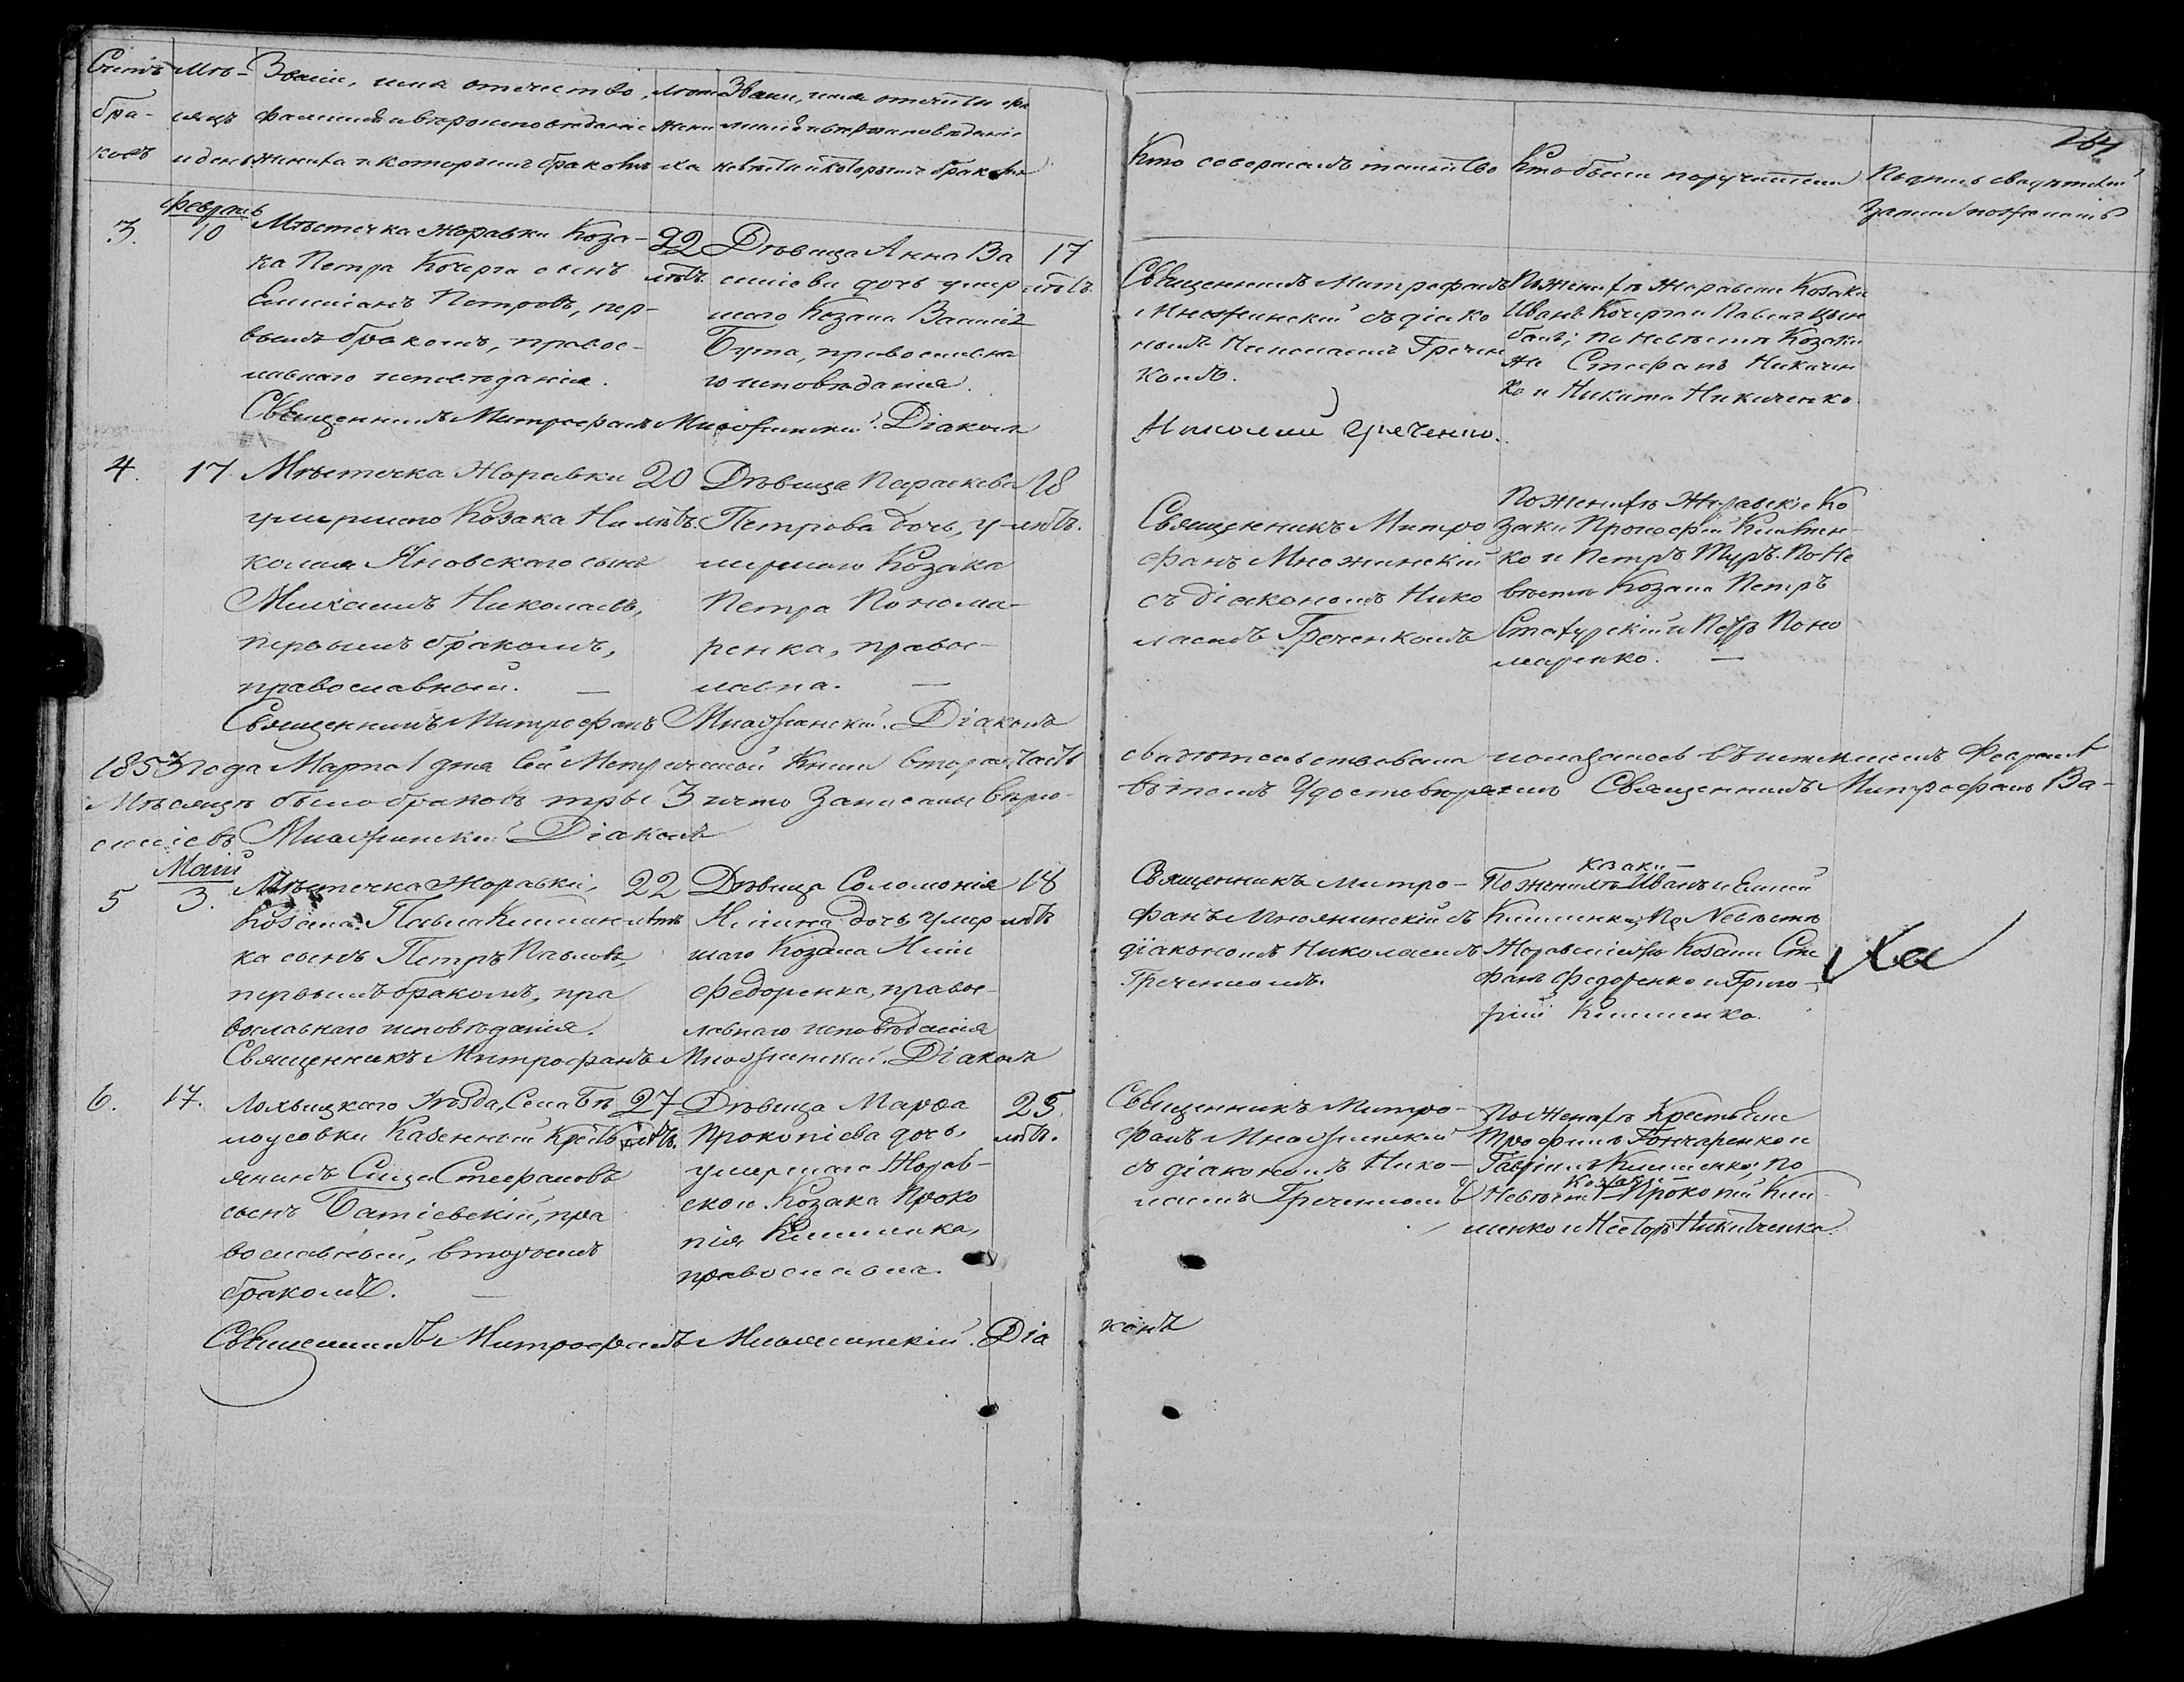 Счетъ бра-
ковъ
Мѣ-
сяцъ
и день
Званіе, имя отчество,
фамилія и вѣроисповѣданіе
жениха и которымъ бракомъ
Лѣта
жени
ха
Званіе, имя отчество фа
милія и вѣроисповѣданіе
невѣсты и которымъ бракомъ
Кто совершалъ таинство
Кто были поручители
Подпись свидѣтелей
записи по желанію
3.
Февраль
10
Мѣстечка Журавки Коза-
ка Петра Кочерги сынъ
Емиліанъ Петровъ, пер-
вымъ бракомъ, правос-
лавнаго исповѣданія.
22
лѣтъ.
Дѣвица Анна Ва
силіева дочь умер
шаго Козака Василія
Бута, православна
го исповѣданія.
17
лѣтъ.
Священникъ Митрофанъ
Множинскій съ діако
номъ Николаемъ Гречен
комъ.
По женихѣ Журавские Козаки
Иванъ Кочерга и Павелъ Цым
балъ; по Невѣстѣ Козаки
же Стефанъ Никичен
ко и Никита Никиченко.
Священникъ Митрофанъ Множинскій. Діаконъ
Николай Греченко.
4.
17.
Мѣстечка Журавки
умершаго Козака Ни
колая Яновскаго сынъ
Михаилъ Николаевъ,
первымъ бракомъ,
православный. —
20
лѣтъ.
Дѣвица Параскева
Петрова дочь, у-
мершаго Козака
Петра Понома-
ренка, правос-
лавна. —
18
лѣтъ.
Священникъ Митро
фанъ Множинскій
съ діакономъ Нико
лаемъ Греченкомъ
По женихѣ Журавскіе Ко
заки Прокофій
ко и Петръ Туръ. По Не
вѣстѣ Козаки Петръ
и Петръ Поно
маренко. —
Священникъ Митрофанъ Множинскій. Діаконъ
1853 года Марта 1 дня сей Метрической Книги вторая часть свидѣтельствована и оказалось въ истекшемъ Февралѣ
Мѣсяцѣ было браковъ три 3 и что записаны вѣрно въ томъ Удостовѣряемъ Священникъ Митрофанъ Ва-
силіевъ Множинскій Діаконъ
5
Маій
3.
Мѣстечка Журавки,
Козака Павла Клишен
ка сынъ Петръ Павловъ,
первымъ бракомъ, пра
вославнаго исповѣданія.
22
лѣтъ
Дѣвица Соломонія
Иліина дочь, умер
шаго Козака Иліи
Федоренка, правос-
лавнаго исповѣданія
18
лѣтъ
Священникъ Митро-
фанъ Множинскій съ
діакономъ Николаемъ
Греченкомъ.
Козаки —
По женихѣ Иванъ и
По Невѣстѣ
Козаки Сте
фанъ Федоренко и Григо-
рій
Священникъ Митрофанъ Множинскій. Діаконъ
6.
17.
Лохвицкаго Уѣзда, Села Бѣ
лоусовки Казенный Крестъ
янинъ Сила Стефановъ
сынъ Батіевскій, пра
вославный, вторымъ
бракомъ. —
27
лѣтъ.
Дѣвица Марѳа
Прокопіева дочь,
умершаго Журав-
скаго Козака Проко
пія
православна.
25.
лѣтъ.
Священникъ Митро-
фанъ Множинскій
съ діакономъ Нико-
лаемъ Греченкомъ
По женихѣ Крестьяне
Трофимъ Гончаренко и
Гавріилъ по
Козаки —
Невѣстѣ Прокопій
и Несторъ Никитченко.
Священникъ Митрофанъ Множинскій. Діа
конъ